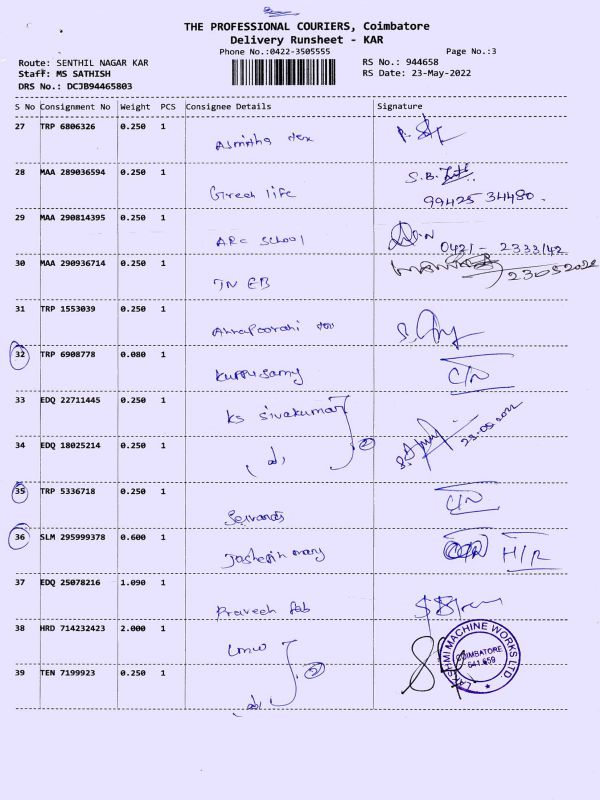 THE PROFESSIONAL COURIERS, Coimbatore
Delivery Runsheet - KAR
Phone No.:0422-3505555
Page No.:3
Route: SENTHIL NAGAR KAR
RS No.: 944658
Staff: MS SATHISH
RS Date: 23-May-2022
DRS No.: DCJB94465803
S No Consignment No Weight PCS Consignee Details Signature
27 TRP 6806326 0.250 1
28 MAA 289036594 0.250 1
Green life
99425 34480.
29 MAA 290814395 0.250 1
ARC School
0421 - 2333142
30 MAA 290936714 0.250 1
TN EB
23052022
31 TRP 1553039 0.250 1
32 TRP 6908778 0.080 1
Kuppusamy
C/N
33 EDQ 22711445 0.250 1
KS Sivakumar
23-05-2022
34 EDQ 18025214 0.250 1
2
35 TRP 5336718 0.250 1
C/N
36 SLM 295999378 0.600 1
H/R
37 EDQ 25078216 1.090 1
Praveen fab
38 HRD 714232423 2.000 1
LMW
LAKSHMI MACHINE WORKS LTD.
COIMBATORE
641 659
39 TEN 7199923 0.250 1
2